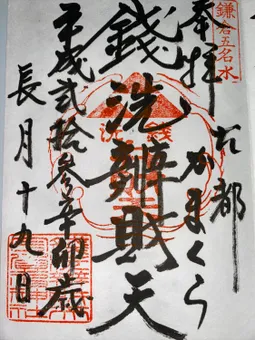 鎌倉五名水
奉拝
古都
かまくら
錢洗辨財天
平成弐拾参年辛卯歳
長月十九日